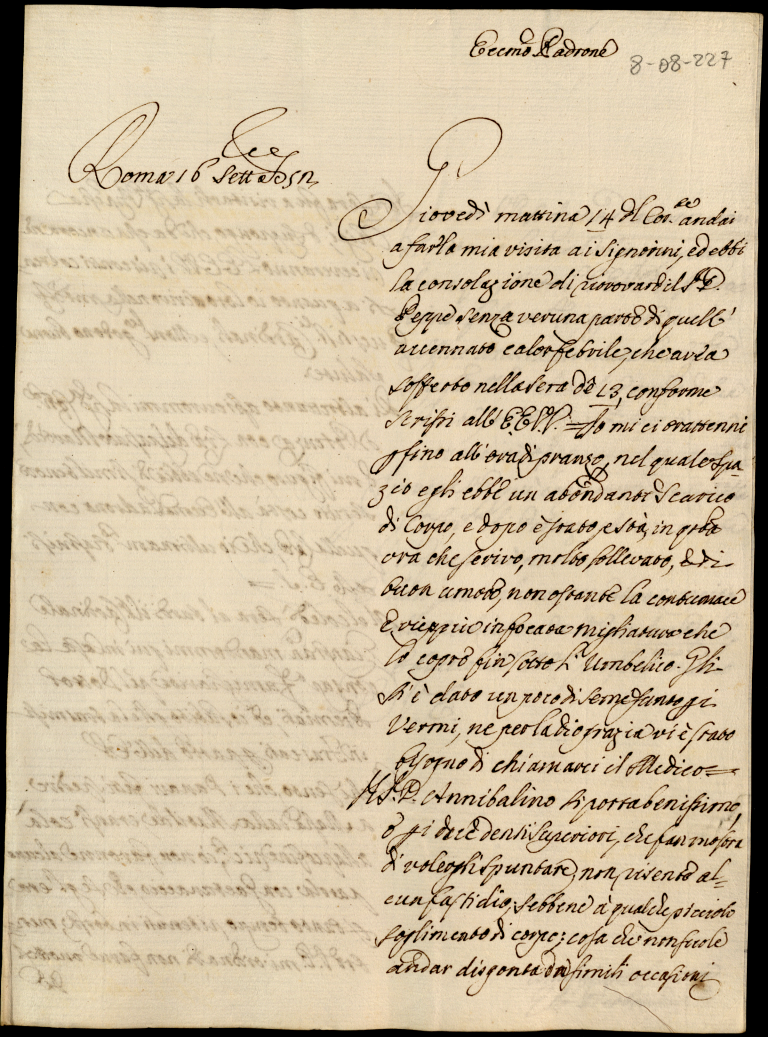 Eccmo Padrone
8-08-227
Roma 16 Sett
Giovedì mattina 14 del Cor.te andai
a far la mia visita ai Signorini, ed ebbi
la consolazione di ritrovare il S.D.
Peppe senza veruna parte di quell'
accennato calor febrile, che avea
sofferto nella sera de 13, conforme
scrissi all' EE.VV. = Io mi ci trattenni
fino all' ora di pranzo, nel quale spa-
zio egli ebbe un abondante scarico
di Corpo, e dopo è stato, e stà, in questa
ora che scrivo, molto sollevato, e di
buon umore, nonostante la contumace
e vieppiù infocata migliatura che
lo copre fin sotto l' Umbelico. Gli
si è dato un poco di seme santo pi
Vermi, ne per la Dio grazia vi è stato
bisogno di chiamarci il Medico =
Il S.D. Annibalino si porta benissimo,
e pi due denti superiori, che fan mostra
di volergli spuntare, non risente al-
cun fastidio, sebbene à qualche picciolo
scioglimento di corpo; cosa che non suole
andar disgonta da simili occasioni